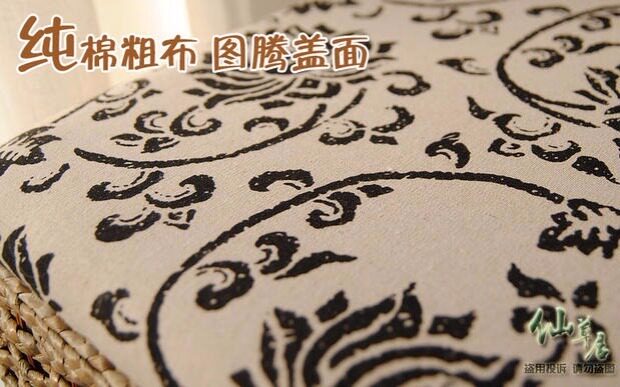 纯棉粗布 图腾盖面
仙草居
盗用投诉 请勿盗图